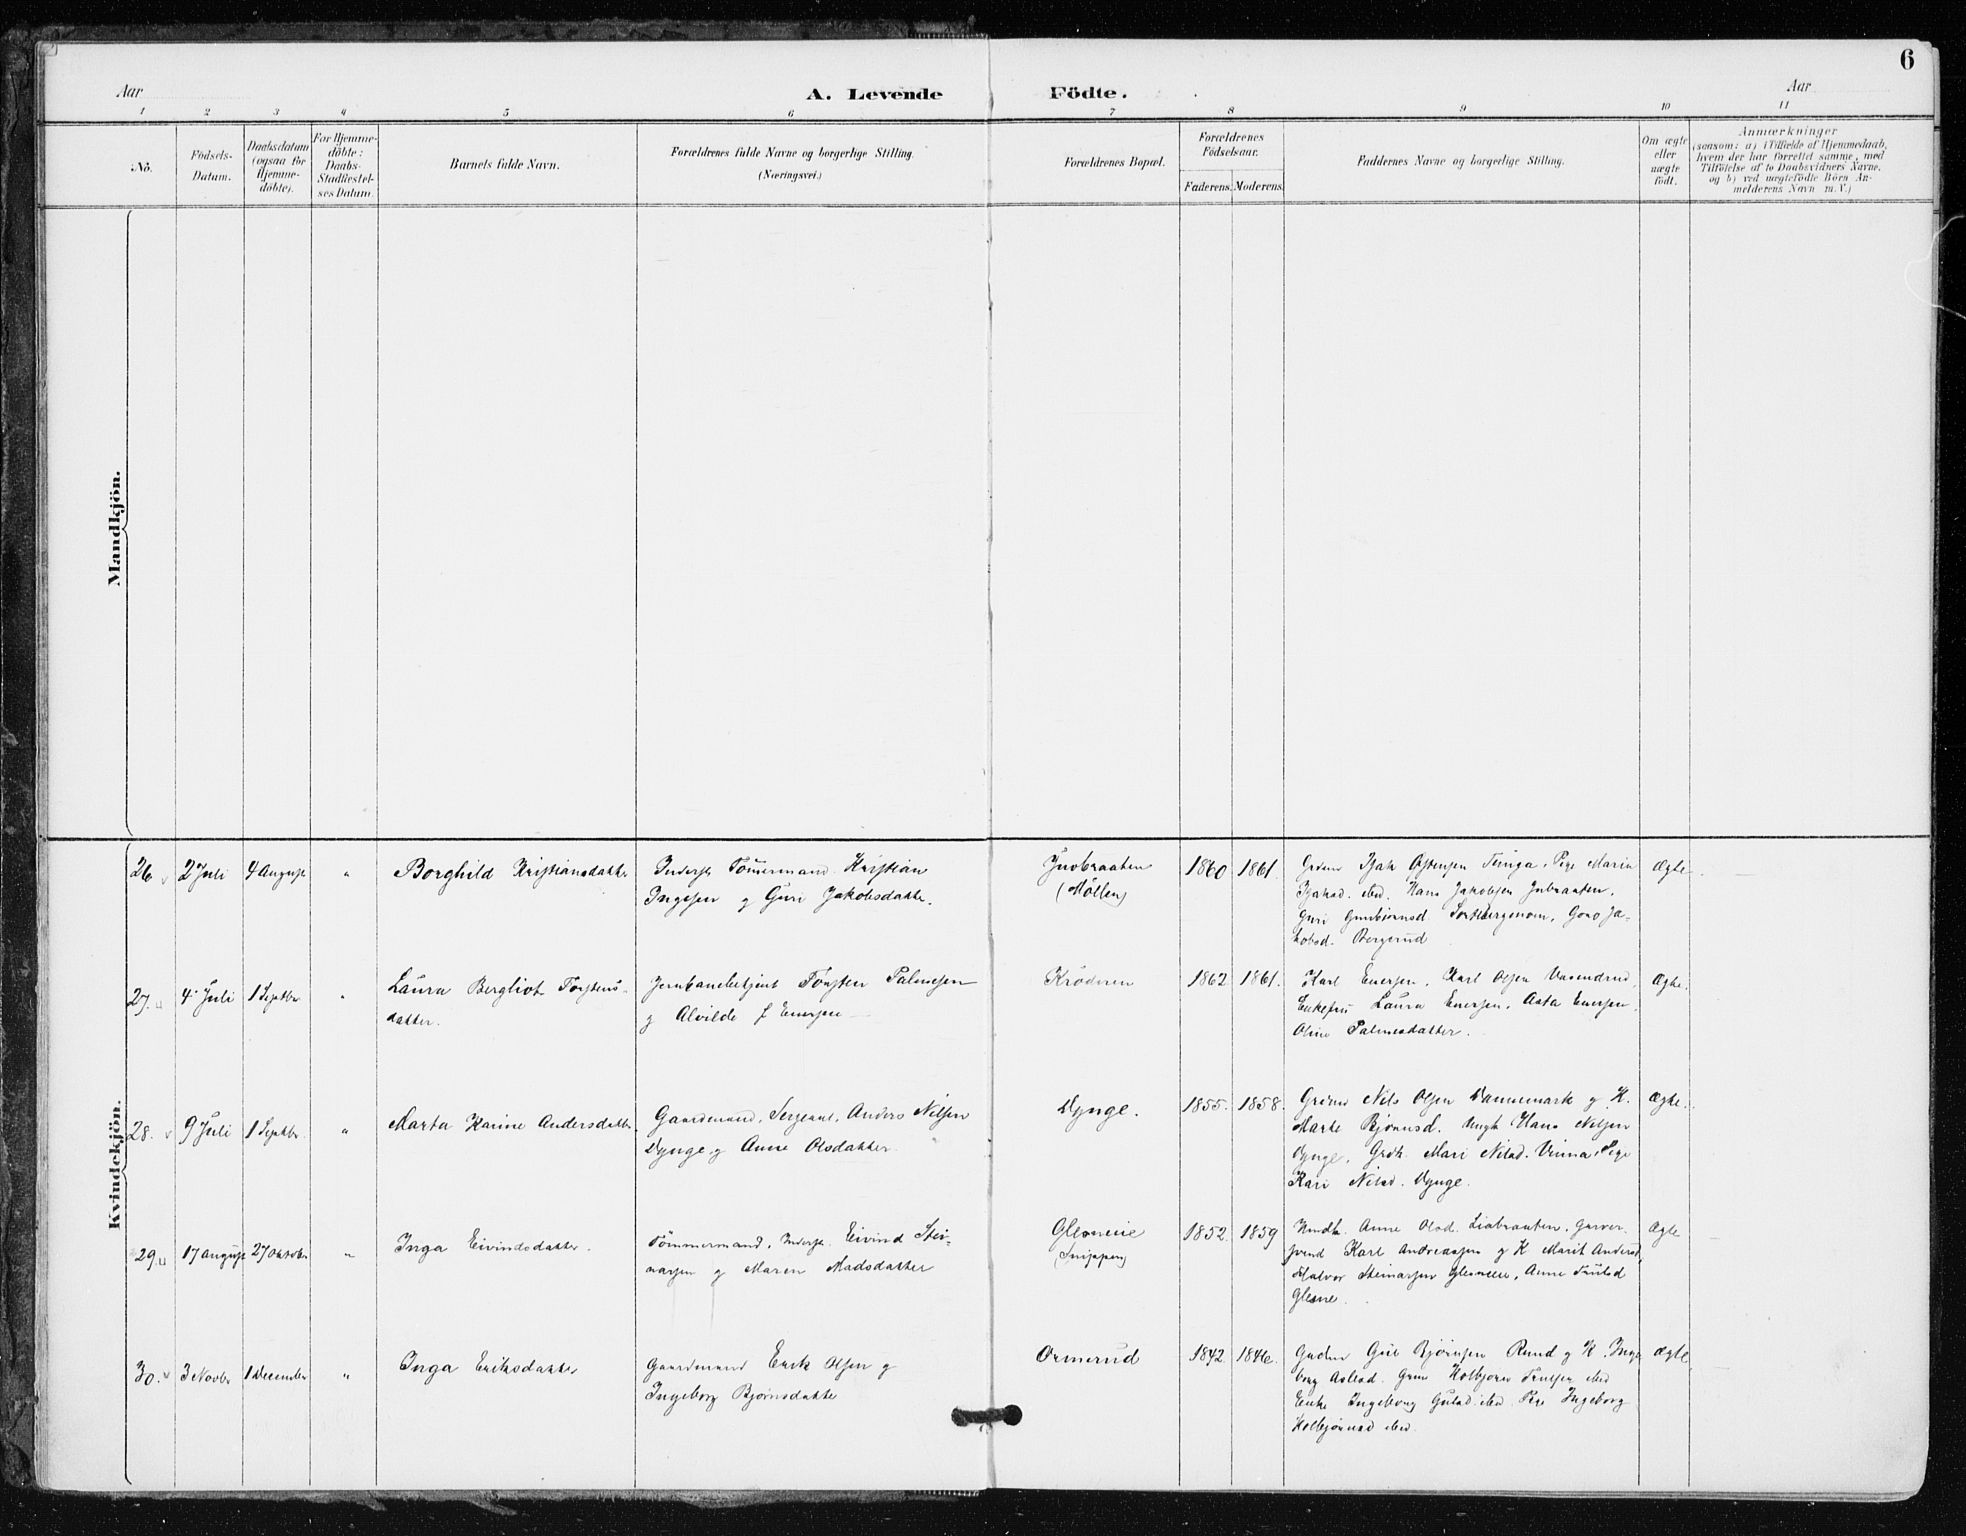 6
Aar
A. Levende Födte.
Aar
1 2 3 4 5 6 7 8 9 10 11
No.
Födsels-
Datum.
Daabsdatum
(ogsaa for
Hjemme-
döbte).
For Hjemme-
döbte:
Daabs-
Stadfæstel-
ses Datum.
Barnets fulde Navn.
Forældrenes fulde Navne og borgerlige Stilling.
(Næringsvei.)
Forældrenes Bopæl.
Forældrenes
Födselsaar.
Faderens. Moderens.
Faddernes Navne og borgerlige Stilling.
Om ægte
eller
uægte
födt.
Anmærkninger
(saasom: a) i Tilfælde af Hjemmedaab,
hvem der har forrettet samme, med
Tilföielse af to Daabsvidners Navne,
og b) ved uægtefödte Börn An-
melderens Navn m. V.)
Mandkjön.
Kvindekjön.
26
2 Juli
4 August
"
Borghild Kristiansdatter
Inderst Tömmermand Kristian
Ingesen og Guri Jakobsdatter.
(Möllen)
1860
1861.
Marie
Hans Jakobsen
Guri
Bergerud
Ægte
27.
4 Juli
1 Septbr
"
Laura Bergliot Torstens-
datter.
Jernbanebetjent Torsten Palmesen
og Alvilde f Enersen
Kröderen
1862
1861.
Karl Enersen, Karl Olsen
Enkefru Laura Enersen, Aasta Enersen,
Oline Palmesdatter.
Ægte.
28.
9 Juli
1 Septbr.
"
Marta Karine Andersdatter
Gaardmand, Sergeant, Anders Nilsen
Dynge og Anne Olsdatter.
Dynge.
1855.
1858.
Nils Olsen Dannemark og K.
Marte Bjørnsd. Ungk Hans Nilsen
Dynge, Mari Nilsd. Pige
Kari Nilsd. Dynge.
Ægte.
29.
17 August
27 Oktober
"
Inga Eivindsdatter.
Tömmermand, Inderst. Eivind Stei-
narsen og Maren Madsdatter
Glesneeie
(Snippen)
1852.
1859
Anne Olsd. Liabraaten, Garver-
svend Karl Andreassen og K Marit Andersd,
Halvor Steinarsen Glesneeie, Anne
Glesne.
Ægte
30.
3 Novbr
1 December
"
Inga Eriksdatter
Gaardmand Erik Olsen og
Ingeborg Bjørnsdatter
Ormerud
1842.
1846.
Bjørnsen Rund og K. Inge-
borg
Enke Ingeborg ibid. Pige Ingeborg
Kolbjørnsd ibid.
Ægte